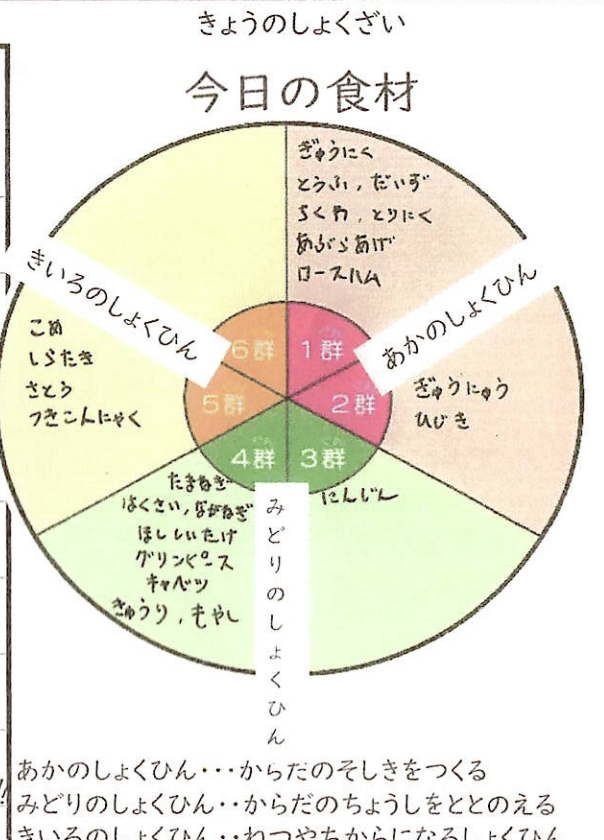 きょうのしょくざい
今日の食材
ぎゅうにく
とうふ,だいず
ちくわ,とりにく
あぶらあげ
ロースハム
きいろのしょくひん
あかのしょくひん
6群
1群
5群
2群
4群
3群
こめ
しらたき
さとう
つきこんにゃく
ぎゅうにゅう
ひじき
たまねぎ
はくさい,ながねぎ
ほししいたけ
グリンピース
キャベツ
きゅうり,もやし
にんじん
みどりのしょくひん
あかのしょくひん・・・からだのそしきをつくる
みどりのしょくひん・・からだのちょうしをととのえる
きいろのしょくひん・・ねつやちからになるしょくひん